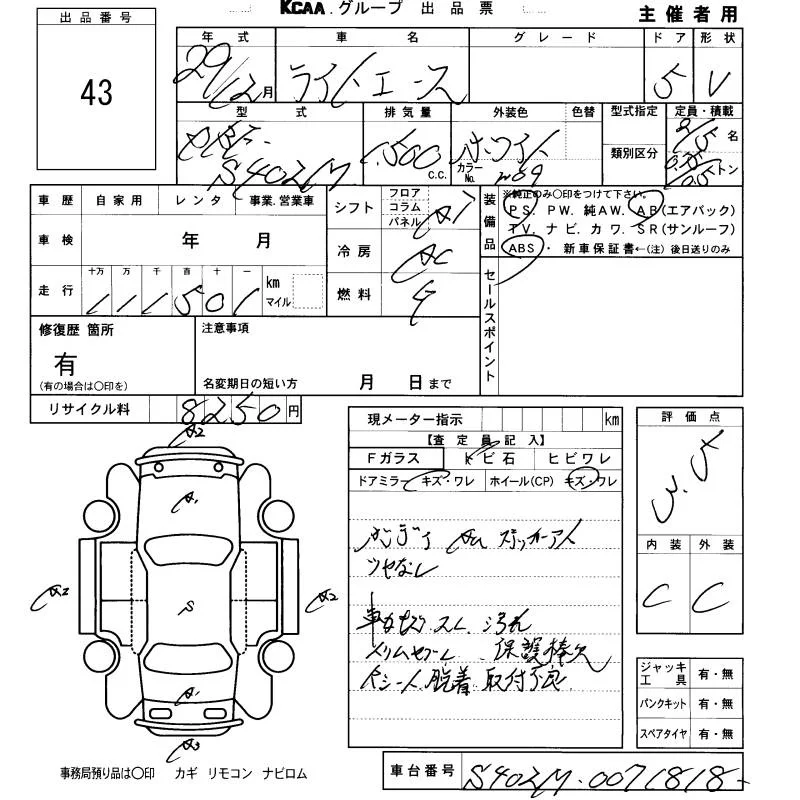 KCAA.グループ 出品票
主催者用
出品番号
43
年式 車名 グレード ドア 形状
29/12月 ライトエース 5 V
型式 排気量 外装色 色替 型式指定 定員・積載
類別区分
S402M 1,500 c.c. ホワイト カラーNo. 2/5 名
トン
車歴 自家用 レンタ 事業.営業車
車検 年 月
走行 十万 万 千 百 十 一 km マイル
111501
シフト フロア コラム パネル AT
冷房 AC
燃料 G
装備品 ※純正のみ○印をつけて下さい。
PS. PW. 純AW. AB(エアバック)
TV. ナビ. カワ. SR(サンルーフ)
ABS ・ 新車保証書←(注) 後日送りのみ
セールスポイント
修復歴 箇所
有
(有の場合は○印を)
注意事項
名変期日の短い方 月 日まで
リサイクル料 8250円
現メーター指示 km
【査定員記入】
Fガラス トビ石 ヒビワレ
ドアミラー キズ・ワレ ホイール(CP) キズ・ワレ
ツヤなし
スレ 汚れ
保護棒欠
脱着 取付不良
評価点
3.5
内装 外装
C C
ジャッキ工具 有・無
パンクキット 有・無
スペアタイヤ 有・無
A2
A1
A2
S
A2
A1
事務局預り品は○印 カギ リモコン ナビロム
車台番号 S402M-0071818-